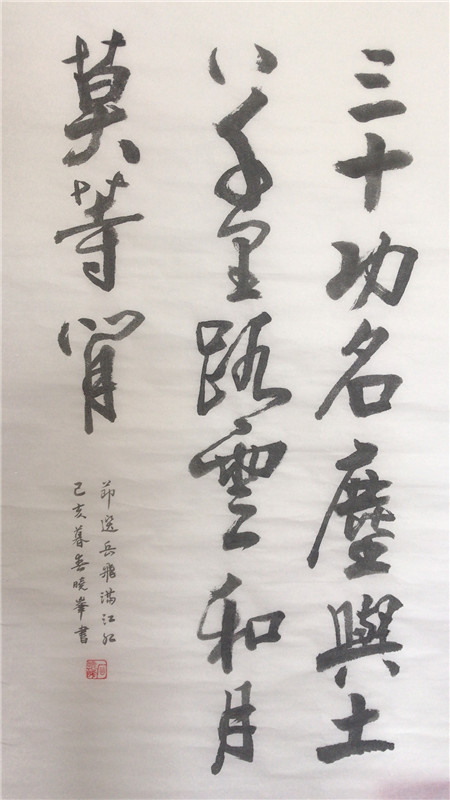 三十功名塵與土
八千里路雲和月
莫等閒
節選岳飛滿江紅
己亥暮春曉峯書